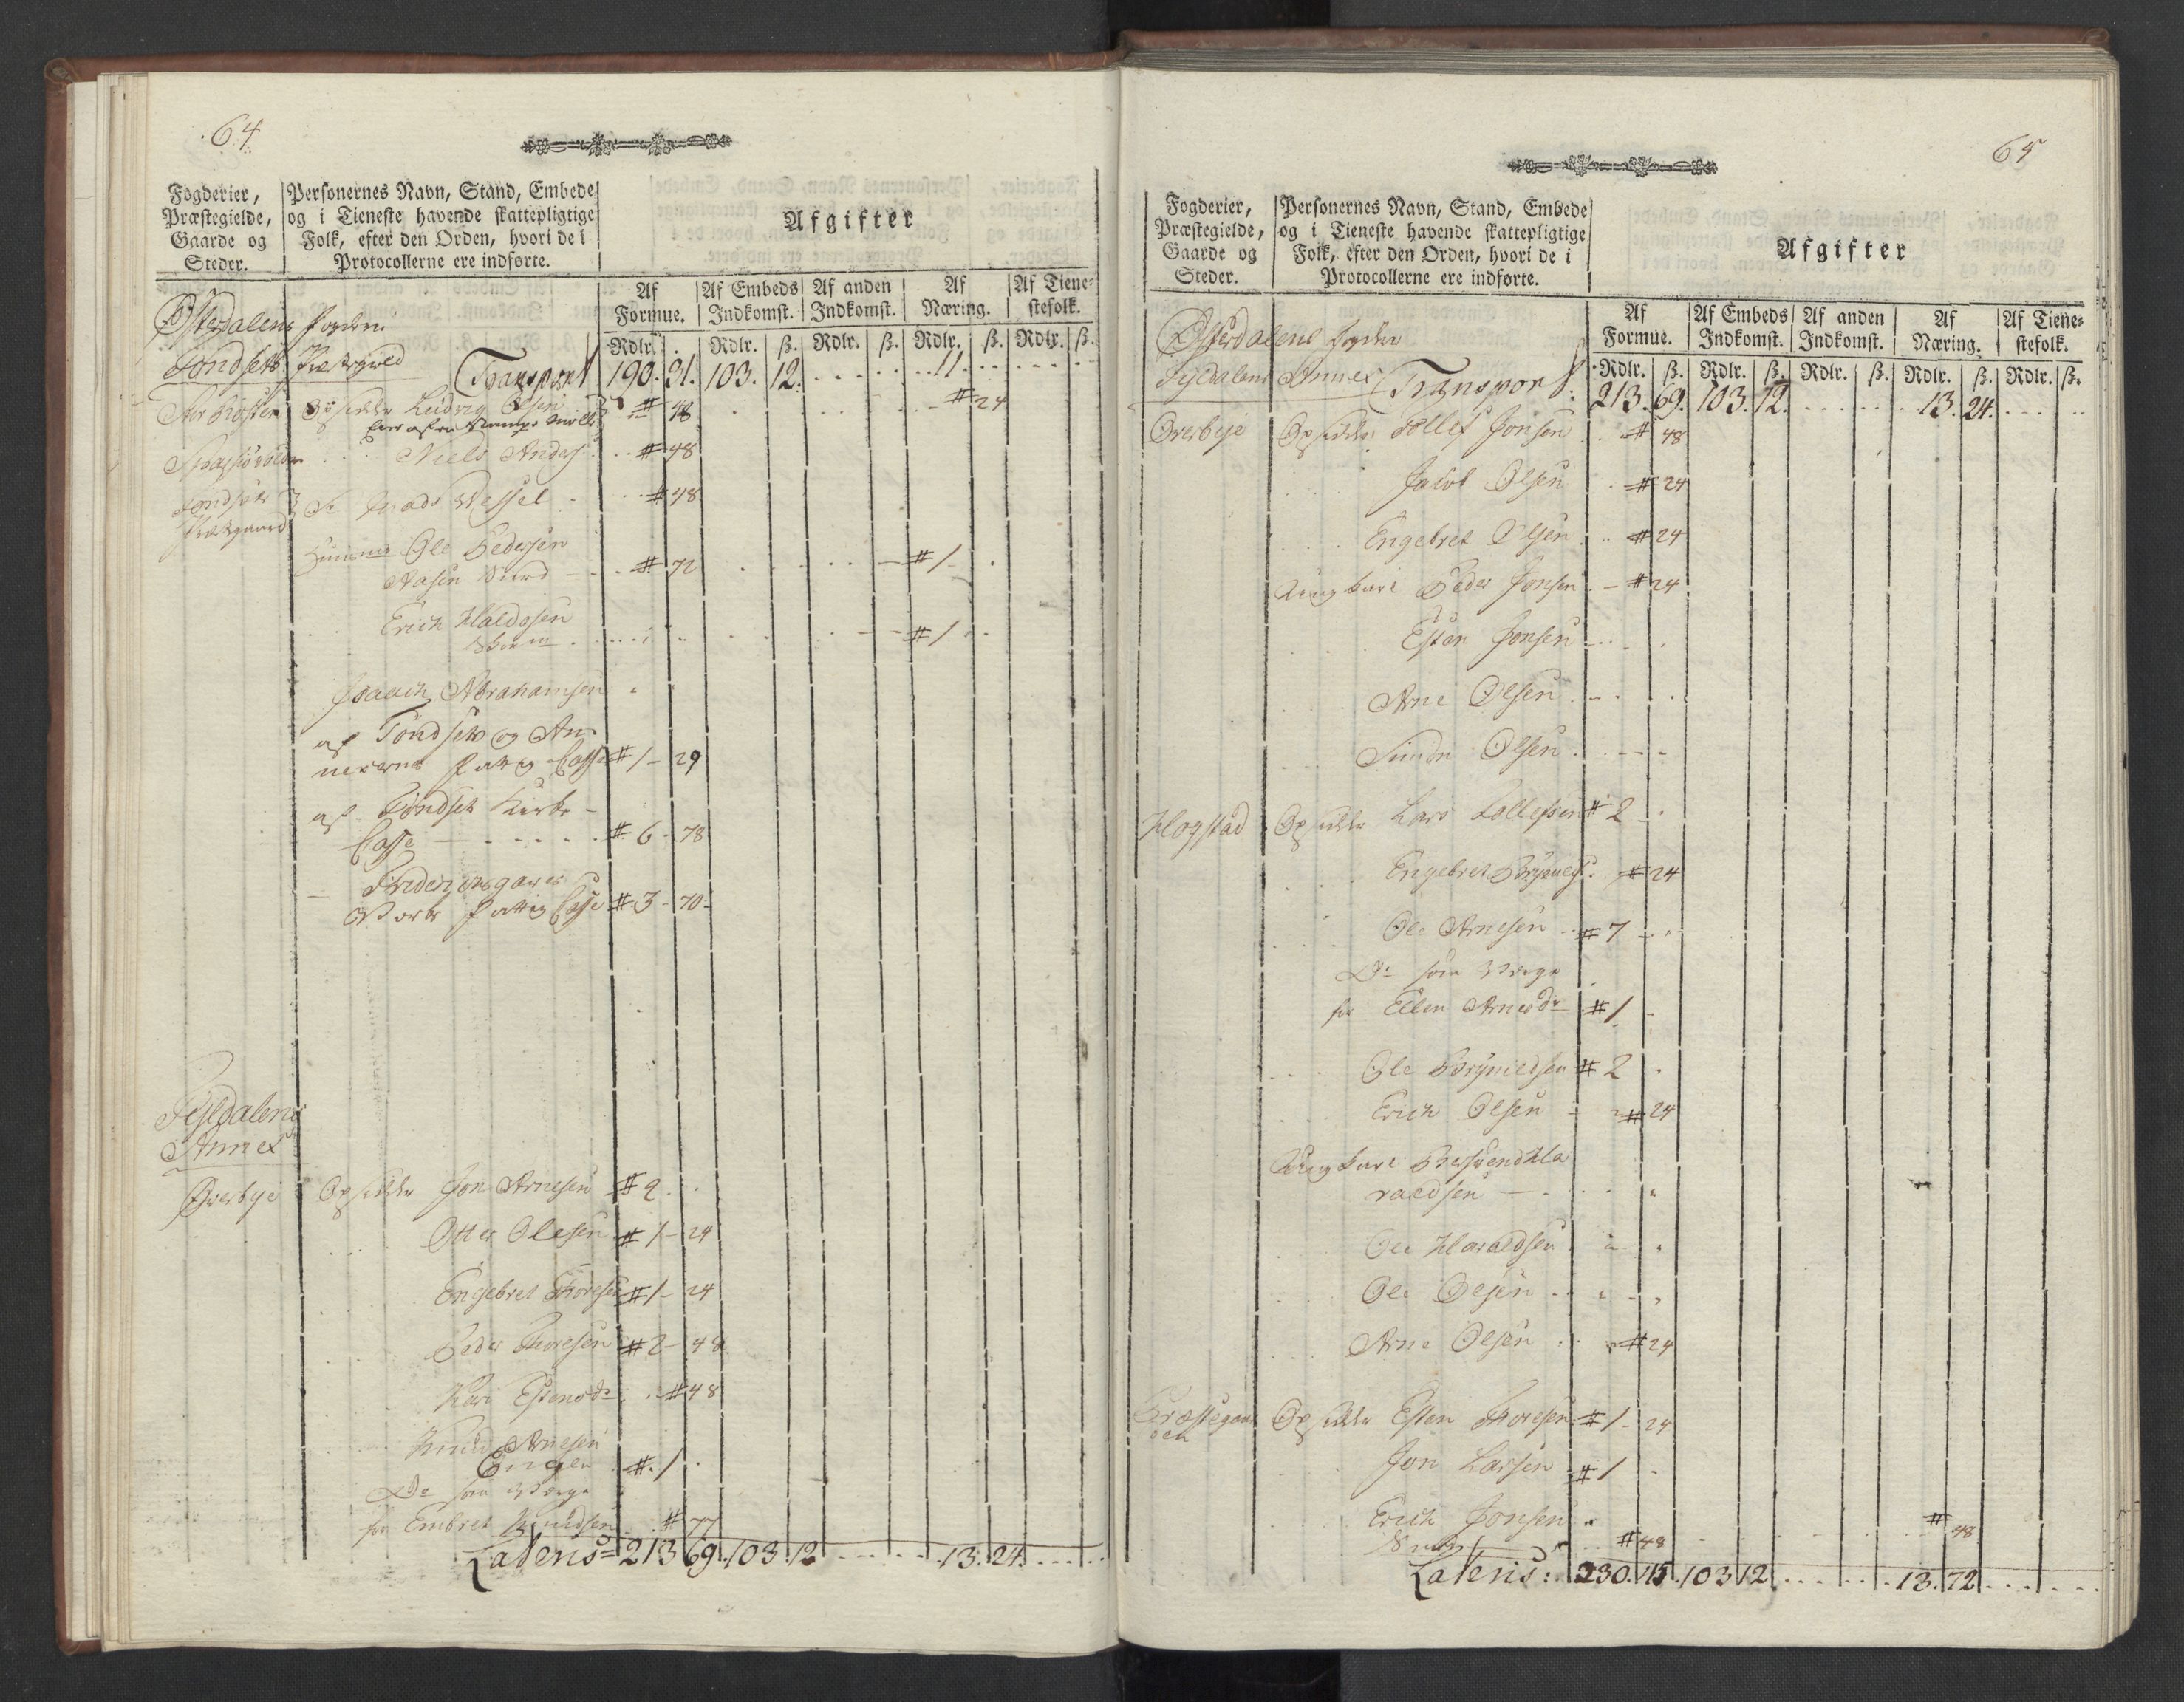 64
Fogderier,
Præstegielde,
Gaarde og
Steder.
Personernes Navn, Stand, Embede
og i Tieneste havende skattepligtige
Folk, efter den Orden, hvori de i
Protocollerne ere indførte.
Afgifter
Af Formue. Af Embeds Indkomst. Af anden Indkomst. Af Næring. Af Tienestefolk.
Rdlr. Rdlr. ß. Rdlr. ß. Rdlr. ß. Rdlr. ß.
Østerdalens Fogderi
Tøndsets Præstegield Transport 190. 31. 103. 12. 11.
Opsidder Ludvig Olsen # 48 # 24
Niels Anders: # 48
Tøndsets Præstgaard Sr Mads Wessel # 48
Ole Pedersen
# 72 # 1
Erich Haldosen
# 1
Isaach Abrahamsen
af Tøndsets og An
nexernes Fattig Casse # 1 - 29
af Tøndset Kirke
Casse # 6 - 78
Fridericsgaves
Værks Fattig Casse # 3 - 70
Tyldalens
Annex
Øverbye Opsidder Jon Arnesen # 2
Otter Olesen # 1 - 24
Engebret Thoresen # 1 - 24
Peder Thoresen # 2 - 48
Kari Estensdr # 48
Knud Arnesen
Engen # 1
Do som Værge
for Embret Knudsen # 77
Lateris = 213 69. 103. 12 13. 24.
65
Fogderier,
Præstegielde,
Gaarde og
Steder.
Personernes Navn, Stand, Embede
og i Tieneste havende skattepligtige
Folk, efter den Orden, hvori de i
Protocollerne ere indførte.
Afgifter
Af Formue. Af Embeds Indkomst. Af anden Indkomst. Af Næring. Af Tienestefolk.
Rdlr. ß. Rdlr. ß. Rdlr. ß. Rdlr. ß. Rdlr. ß.
Østerdalens Fogderi
Tyldalens Annex Transport. 213. 69. 103. 12. 13. 24.
Øverbye Opsidder Tollef Jonsen # 48
Jacob Olsen # 24
Engebret Olsen # 24
Ungkarl Peder Jonsen # 24
Esten Jonsen
Arne Olsen
Simon Olsen
Hogstad Opsidder Lars Tollefsen # 2
Engebret Brynels: # 24
Ole Arnesen # 7
Do som Værge
for Ellen Arnesdr # 1
Ole Brynildsen # 2
Erich Olsen # 24
Ungkarl Bersvend Ha
raldsen
Ole Haraldsen
Ole Olsen
Arne Olsen # 24
Præstegaar
den Opsidder Esten Thoresen # 1 - 24
Jon Larsen # 1
Erich Jonsen
# 48 # 48
Lateris: 230. 15. 103 12 13. 72